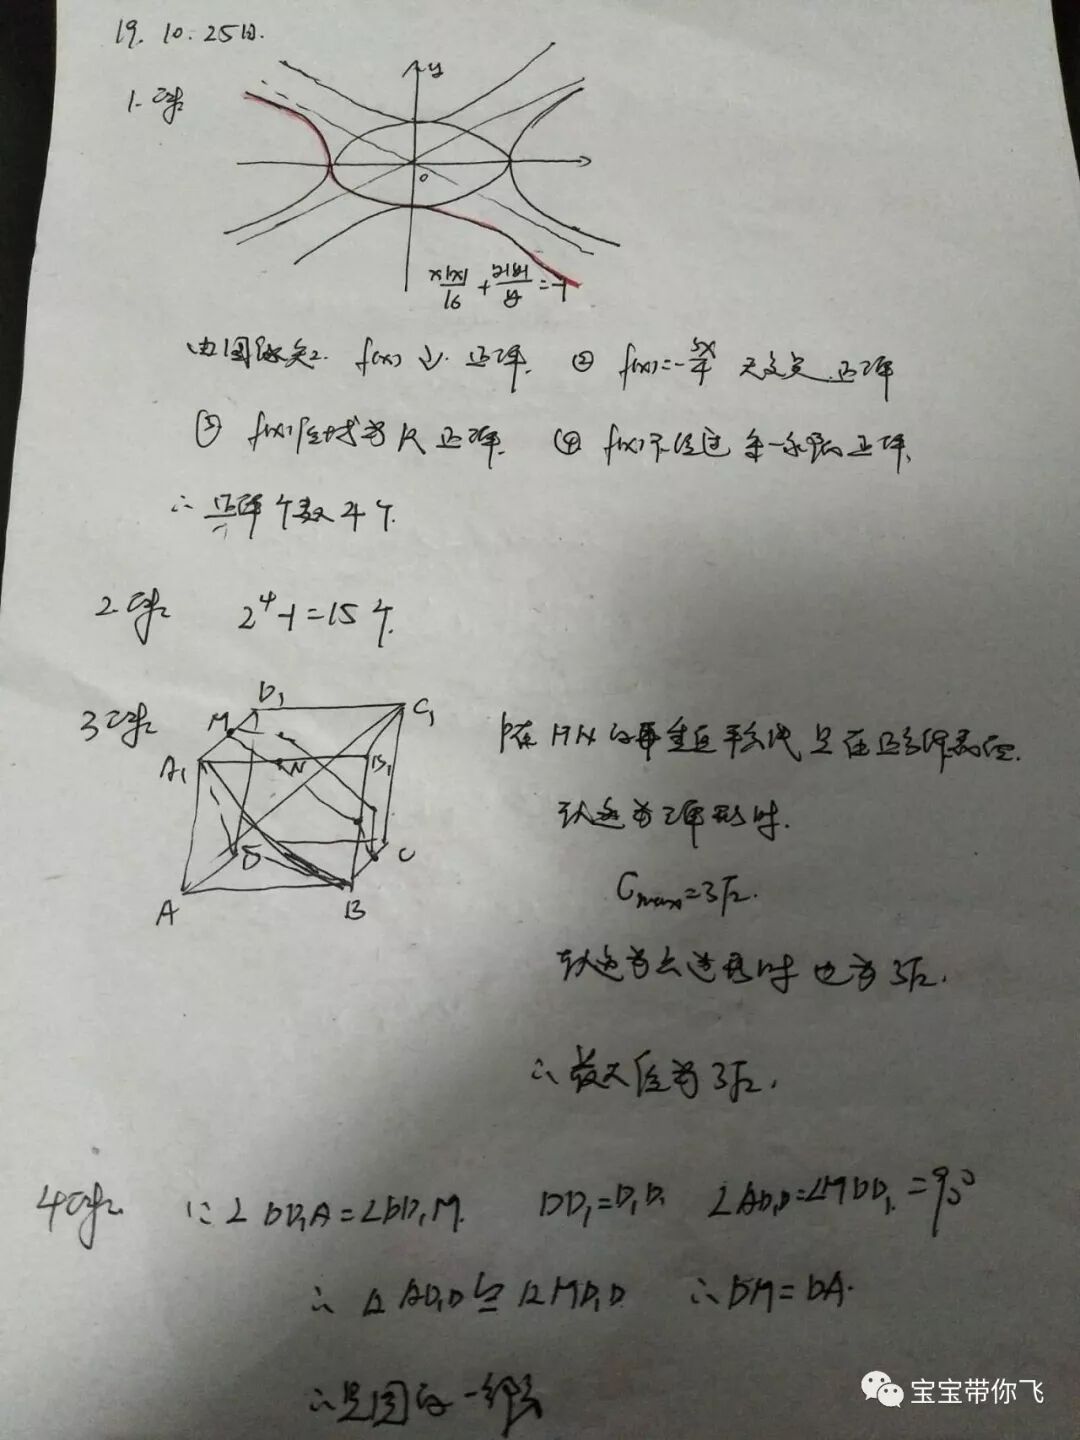 19. 10. 25日.
1.解
y
O
x|x|/16 + y|y|/9 = -1
由图像知. f(x)↓. 正确. ② f(x)=-3x/4 无交点.正确
③ f(x)值域为R 正确. ④ f(x)不经过第一象限正确.
∴ 正确个数4个.
2.解 2^4-1=15个.
3解
M D₁ C₁
A₁ N B₁
D C
A B
在MN的垂直平分线
Cmax=3√2.
也为3√2.
∴最大值为3√2.
4解 ∵∠DD₁A=∠DD₁M. DD₁=D₁D. ∠AD₁D=∠MDD₁=90°
∴△AD₁D≌△MD₁D ∴DM=DA.
∴是圆的一部分
宝宝带你飞